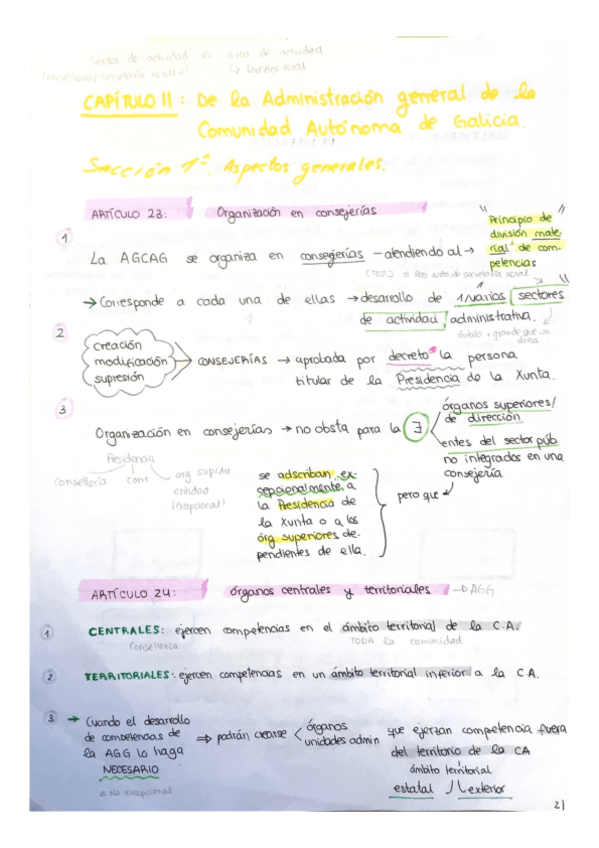 Sector de actividad vs área de actividad
Consellería/secretaría xeral ↳ Dirección xeral
CAPÍTULO II: De la Administración general de la
Comunidad Autónoma de Galicia.
Sección 1ª. Aspectos generales.
ARTÍCULO 23: Organización en consejerías
1
La AGCAG se organiza en consejerías – atendiendo al → "Principio de
división mate-
rial de com-
petencias"
→ Corresponde a cada una de ellas → desarrollo de 1/varios sectores
de actividad administrativa.
+ grande que un
área
2
creación
modificación
supresión
CONSEJERÍAS → aprobada por decreto* la persona
titular de la Presidencia de la Xunta.
3
Organización en consejerías → no obsta para la ∃
órganos superiores/
de dirección
entes del sector púb
no integrados en una
consejería
pero que
Presidencia
Consellería cons org sup/dir
entidad
(excepcional)
se adscriban ex-
cepcionalmente a
la Presidencia de
la Xunta o a los
órg superiores de-
pendientes de ella.
ARTÍCULO 24: órganos centrales y territoriales → AGG
1
CENTRALES: ejercen competencias en el ámbito territorial de la C.A.
Consellería TODA la comunidad
2
TERRITORIALES: ejercen competencias en un ámbito territorial inferior a la CA.
3
→ Cuando el desarrollo
de competencias de
la AGG lo haga
NECESARIO
≠ No excepcional
⇒ podrán crearse < órganos
unidades admin
que ejerzan competencia fuera
del territorio de la CA
ámbito territorial
estatal / exterior
21